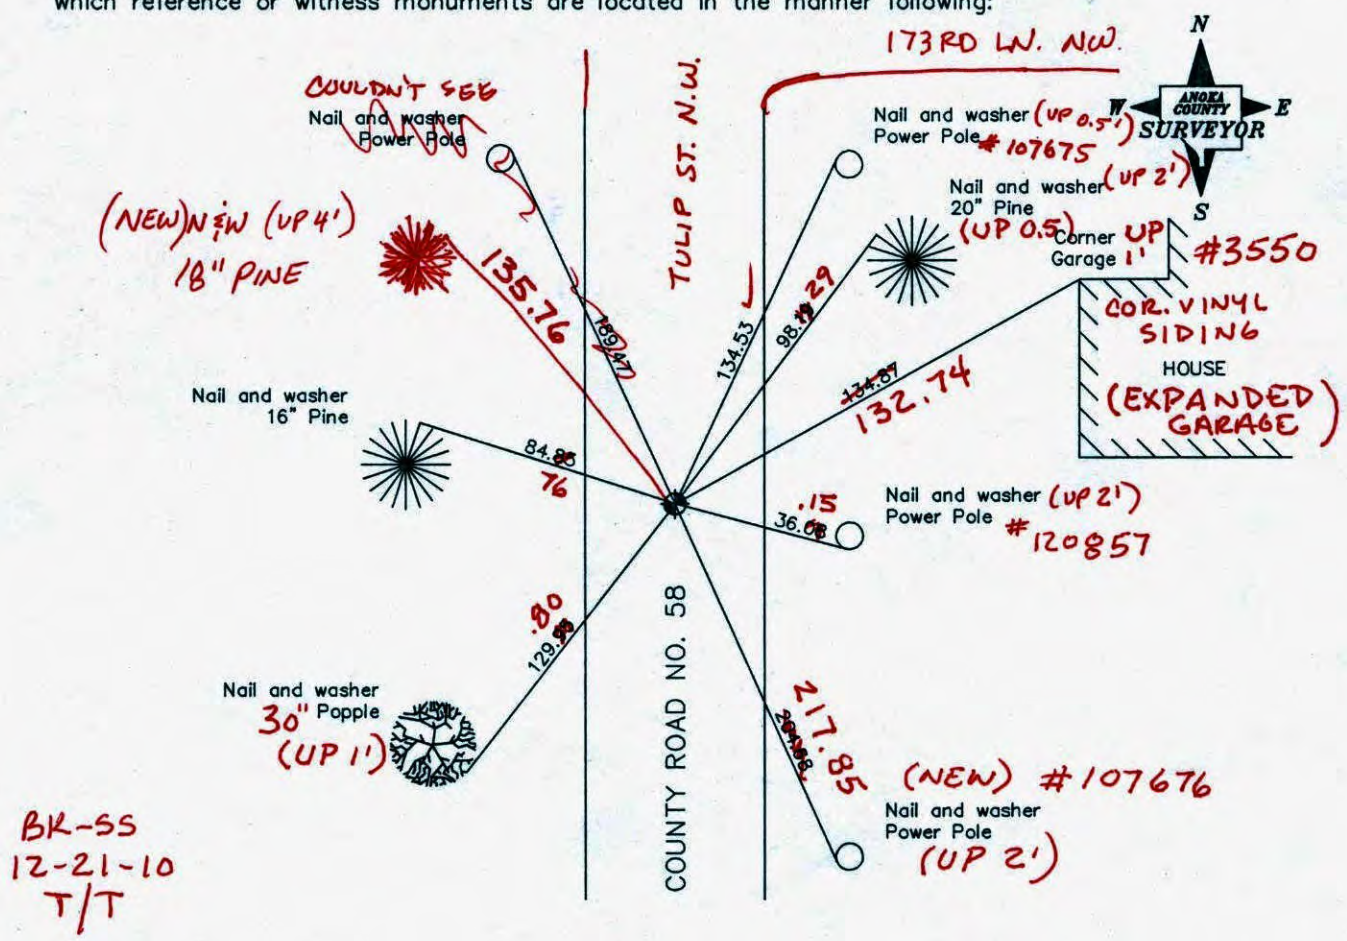 which reference or witness monuments are located in the manner following:
173RD LN. N.W.
N
W
ANOKA
COUNTY
E
SURVEYOR
S
COULDN'T SEE
Nail and washer
Power Pole
TULIP ST. N.W.
Nail and washer (UP 0.5')
Power Pole #107675
Nail and washer (UP 2')
20" Pine
(UP 0.5)
Corner UP
Garage 1'
#3550
COR. VINYL
SIDING
HOUSE
(EXPANDED)
GARAGE
(NEW) N&W (UP 4')
18" PINE
135.76
189.47
134.53
98.
29
134.87
132.74
Nail and washer
16" Pine
84.
76
.15
36.
Nail and washer (UP 2')
Power Pole #
120857
.80
129.
Nail and washer
30" Popple
(UP 1')
COUNTY ROAD NO. 58
217.85
(NEW) #107676
Nail and washer
Power Pole
(UP 2')
BK-SS
12-21-10
T/T